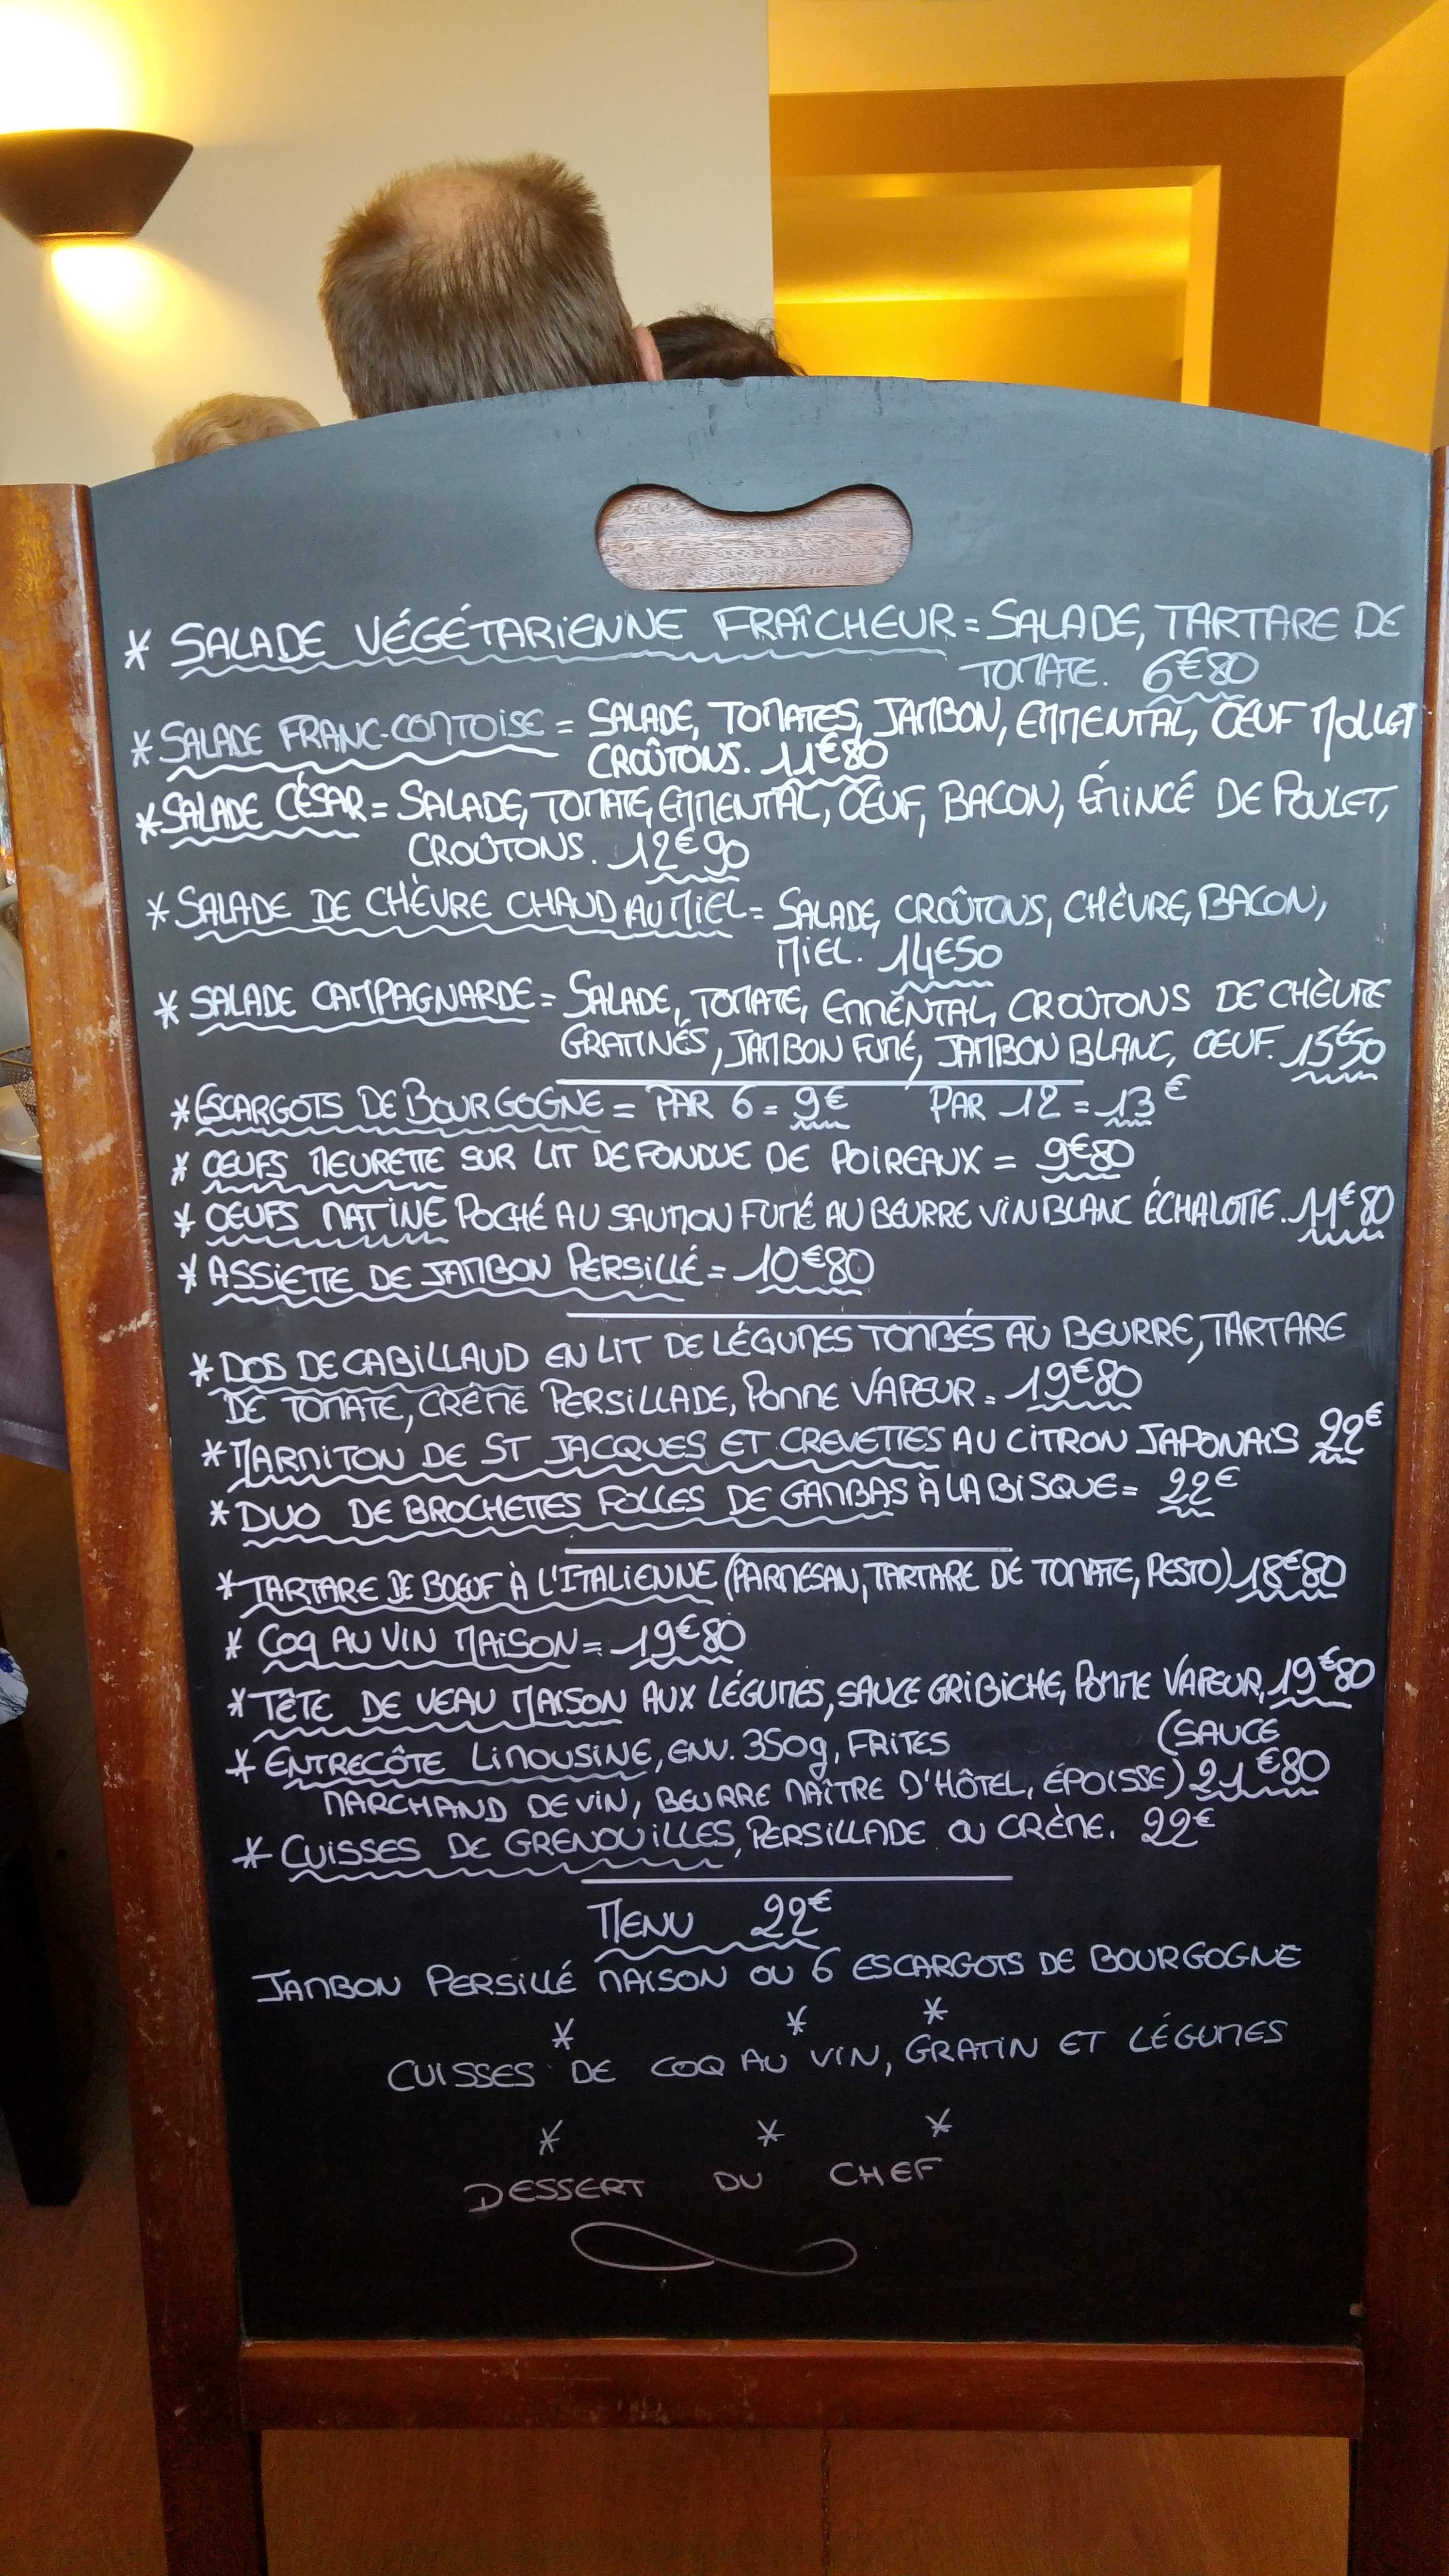 * SALADE VÉGÉTARIENNE FRAÎCHEUR = SALADE, TARTARE DE
TOMATE. 6€80
* SALADE FRANC-COMTOISE = SALADE, TOMATES, JAMBON, EMMENTAL, ŒUF MOLLET
CROÛTONS. 11€80
* SALADE CÉSAR = SALADE, TOMATE, EMMENTAL, ŒUF, BACON, ÉMINCÉ DE POULET,
CROÛTONS. 12€90
* SALADE DE CHÈVRE CHAUD AU MIEL = SALADE, CROÛTONS, CHÈVRE, BACON,
MIEL. 14€50
* SALADE CAMPAGNARDE = SALADE, TOMATE, EMMÉNTAL, CROÛTONS DE CHÈVRE
GRATINÉS, JAMBON FUMÉ, JAMBON BLANC, ŒUF. 15€50
* ESCARGOTS DE BOURGOGNE = PAR 6 = 9€ PAR 12 = 13€
* ŒUFS MEURETTE SUR LIT DE FONDUE DE POIREAUX = 9€80
* ŒUFS MATINE POCHÉ AU SAUMON FUMÉ AU BEURRE VIN BLANC ÉCHALOTTE. 11€80
* ASSIETTE DE JAMBON PERSILLÉ = 10€80
* DOS DE CABILLAUD EN LIT DE LÉGUMES TOMBÉS AU BEURRE, TARTARE
DE TOMATE, CRÈME PERSILLADE, POMME VAPEUR = 19€80
* MARMITON DE ST JACQUES ET CREVETTES AU CITRON JAPONAIS 22€
* DUO DE BROCHETTES FOLLES DE GAMBAS À LA BISQUE = 22€
* TARTARE DE BOEUF À L'ITALIENNE (PARMESAN, TARTARE DE TOMATE, PESTO) 18€80
* COQ AU VIN MAISON = 19€80
* TÊTE DE VEAU MAISON AUX LÉGUMES, SAUCE GRIBICHE, POMME VAPEUR, 19€80
* ENTRECÔTE LIMOUSINE, ENV. 350g, FRITES (SAUCE
MARCHAND DE VIN, BEURRE MAÎTRE D'HÔTEL, ÉPOISSE) 21€80
* CUISSES DE GRENOUILLES, PERSILLADE OU CRÈME. 22€
MENU 22€
JAMBON PERSILLÉ MAISON OU 6 ESCARGOTS DE BOURGOGNE
* * *
CUISSES DE COQ AU VIN, GRATIN ET LÉGUMES
* * *
DESSERT DU CHEF